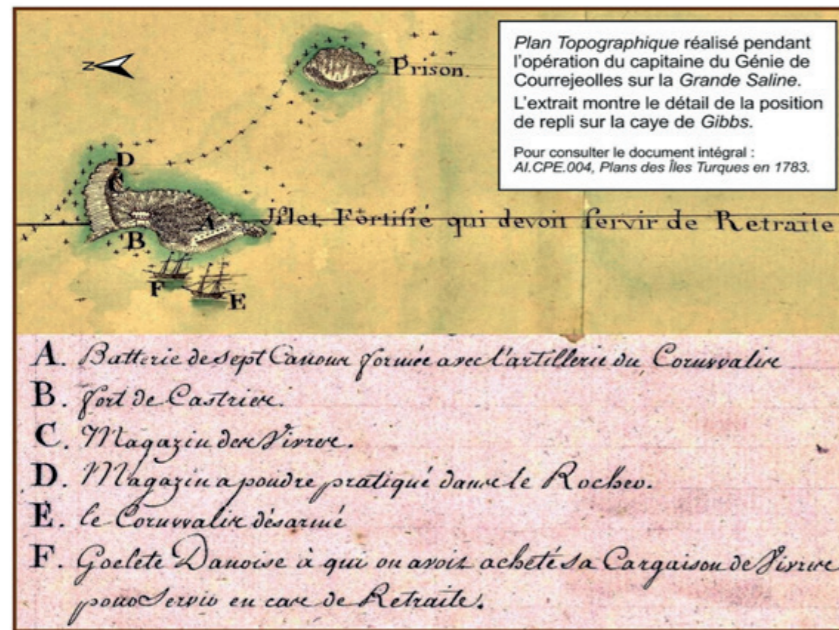 Plan Topographique réalisé pendant
l'opération du capitaine du Génie de
Courrejeolles sur la Grande Saline.
L'extrait montre le détail de la position
de repli sur la caye de Gibbs.
Pour consulter le document intégral :
AI.CPE.004, Plans des Îles Turques en 1783.
N
Prison.
D
C
A
Islet Fortifié qui devoit servir de Retraite
B
F
E
A. Batterie de sept Canons formée avec l'artillerie du Cornwalis
B. fort de Castries.
C. Magazin des Vivres.
D. Magazin a poudre pratiqué dans le Rocher.
E. le Cornwalis désarmé
F. Goelete Danoise à qui on avoit acheté sa Cargaison de Vivres
pour Servir en cas de Retraite.